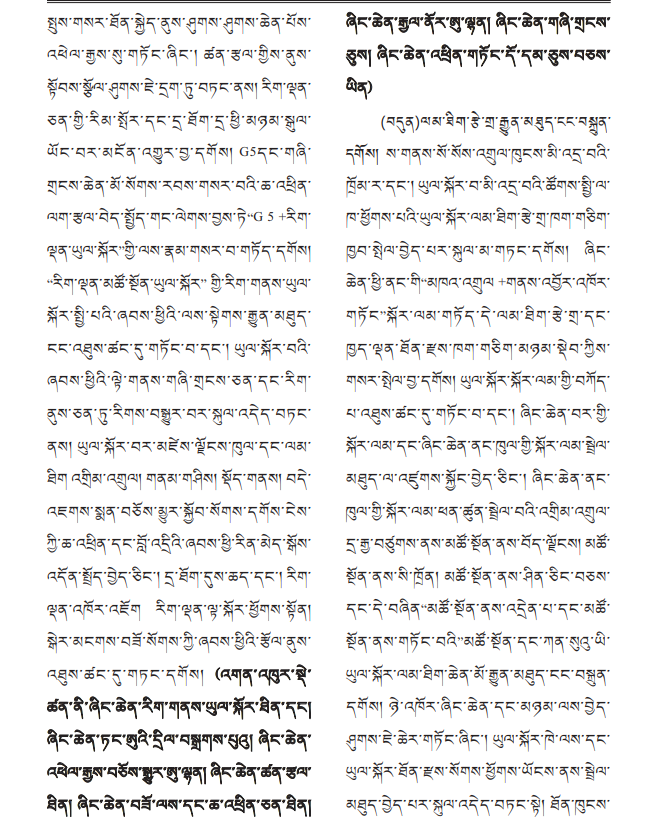 སྤུས་གསར་ཐོན་སྐྱེད་ནུས་ཤུགས་ཤུགས་ཆེན་པོས་
འཕེལ་རྒྱས་སུ་གཏོང་ཞིང་། ཚན་རྩལ་གྱིས་ནུས་
སྟོབས་སྩོལ་ཤུགས་ཇེ་དྲག་ཏུ་བཏང་ནས། རིག་ལྡན་
ཅན་གྱི་རིམ་སྤོར་དང་དྲ་ཐོག་དྲ་ཕྱི་མཉམ་སྒྲུལ་
ཡོང་བར་མངོན་འགྱུར་བྱ་དགོས། G5དང་གཞི་
གྲངས་ཆེན་མོ་སོགས་རབས་གསར་བའི་ཆ་འཕྲིན་
ལག་རྩལ་བེད་སྤྱོད་གང་ལེགས་བྱས་ཏེ“G 5 +རིག་
ལྡན་ཡུལ་སྐོར”གྱི་ལས་རྣམ་གསར་བ་གཏོད་དགོས།
“རིག་ལྡན་མཚོ་སྔོན་ཡུལ་སྐོར” གྱི་རིག་གནས་ཡུལ་
སྐོར་སྤྱི་པའི་ཞབས་ཕྱིའི་ལས་སྟེགས་རྒྱུན་མཐུད་
ངང་འཐུས་ཚང་དུ་གཏོང་བ་དང་། ཡུལ་སྐོར་བའི་
ཞབས་ཕྱིའི་ལྟེ་གནས་གཞི་གྲངས་ཅན་དང་རིག་
ནུས་ཅན་ཏུ་རིགས་བསྒྱུར་བར་སྐུལ་འདེད་བཏང་
ནས། ཡུལ་སྐོར་བར་མཛེས་ལྗོངས་ཁུལ་དང་ལམ་
ཐིག འགྲིམ་འགྲུལ། གནམ་གཤིས། སྡོད་གནས། བདེ་
འཇགས་སྨན་བཅོས་མྱུར་སྐྱོབ་སོགས་དགོས་ངེས་
ཀྱི་ཆ་འཕྲིན་དང་བློ་འདྲིའི་ཞབས་ཕྱི་རིན་མེད་སྒོས་
འདོན་སྤྲོད་བྱེད་ཅིང་། དྲ་ཐོག་དུས་ཆད་དང་། རིག་
ལྡན་འཁོར་འཇོག རིག་ལྡན་ལྟ་སྐོར་ཕྱོགས་སྟོན།
སྒེར་མངགས་བཟོ་སོགས་ཀྱི་ཞབས་ཕྱིའི་རྩོལ་ནུས་
འཐུས་ཚང་དུ་གཏང་དགོས། (འགན་འཁུར་སྡེ་
ཚན་ནི་ཞིང་ཆེན་རིག་གནས་ཡུལ་སྐོར་ཐིན་དང།
ཞིང་ཆེན་ཏང་ཨུའི་དྲིལ་བསྒྲགས་པུའུ། ཞིང་ཆེན་
འཕེལ་རྒྱས་བཅོས་སྒྱུར་ཨུ་ལྷན། ཞིང་ཆེན་ཚན་རྩལ་
ཐིན། ཞིང་ཆེན་བཟོ་ལས་དང་ཆ་འཕྲིན་ཅན་ཐིན།
ཞིང་ཆེན་རྒྱལ་ནོར་ཨུ་ལྷན། ཞིང་ཆེན་གཞི་གྲངས་
ཅུས། ཞིང་ཆེན་འཕྲིན་གཏོང་དོ་དམ་ཅུས་བཅས་
ཡིན)
(བདུན)ལམ་ཐིག་རྩེ་གྲ་རྒྱུན་མཐུད་ངང་བསྐྲུན་
དགོས། ས་གནས་སོ་སོས་འགྲུལ་ཁུངས་མི་འདྲ་བའི་
ཁྲོམ་ར་དང་། ཡུལ་སྐོར་བ་མི་འདྲ་བའི་ཚོགས་སྤྱི་ལ་
ཁ་ཕྱོགས་པའི་ཡུལ་སྐོར་ལམ་ཐིག་རྩེ་གྲ་ཁག་གཅིག་
ཁྱབ་སྤེལ་བྱེད་པར་སྐུལ་མ་གཏང་དགོས། ཞིང་
ཆེན་ཕྱི་ནང་གི“མཁའ་འགྲུལ +གནས་འབྱོར་འཁོར་
གཏོང”སྐོར་ལམ་གཏོད་དེ་ལམ་ཐིག་རྩེ་གྲ་དང་
ཁྱད་ལྡན་ཐོན་རྫས་ཁག་གཅིག་མཉམ་སྡེབ་ཀྱིས་
གསར་སྤེལ་བྱ་དགོས། ཡུལ་སྐོར་སྐོར་ལམ་གྱི་བཀོད་
པ་འཐུས་ཚང་དུ་གཏོང་བ་དང་། ཞིང་ཆེན་བར་གྱི་
སྐོར་ལམ་དང་ཞིང་ཆེན་ནང་ཁུལ་གྱི་སྐོར་ལམ་སྦྲེལ་
མཐུད་ལ་འཛུགས་སྐྱོང་བྱེད་ཅིང་། ཞིང་ཆེན་ནང་
ཁུལ་གྱི་སྐོར་ལམ་ཕན་ཚུན་སྦྲེལ་བའི་འགྲིམ་འགྲུལ་
དྲ་རྒྱ་བཙུགས་ནས་མཚོ་སྔོན་ནས་བོད་ལྗོངས། མཚོ་
སྔོན་ནས་སི་ཁྲོན། མཚོ་སྔོན་ནས་ཤིན་ཅིང་བཅས་
དང་དེ་བཞིན“མཚོ་སྔོན་ནས་འདྲེན་པ་དང་མཚོ་
སྔོན་ནས་གཏོང་བའི”མཚོ་སྔོན་དང་ཀན་སུའུ་ཡི་
ཡུལ་སྐོར་ལམ་ཐིག་ཆེན་མོ་རྒྱུན་མཐུད་ངང་བསྐྲུན་
དགོས། ཉེ་འཁོར་ཞིང་ཆེན་དང་མཉམ་ལས་བྱེད་
ཤུགས་ཇེ་ཆེར་གཏོང་ཞིང་། ཡུལ་སྐོར་ཁེ་ལས་དང་
ཡུལ་སྐོར་ཐོན་རྫས་སོགས་ཕྱོགས་ཡོངས་ནས་སྦྲེལ་
མཐུད་བྱེད་པར་སྐུལ་འདེད་བཏང་སྟེ། ཐོན་ཁུངས་